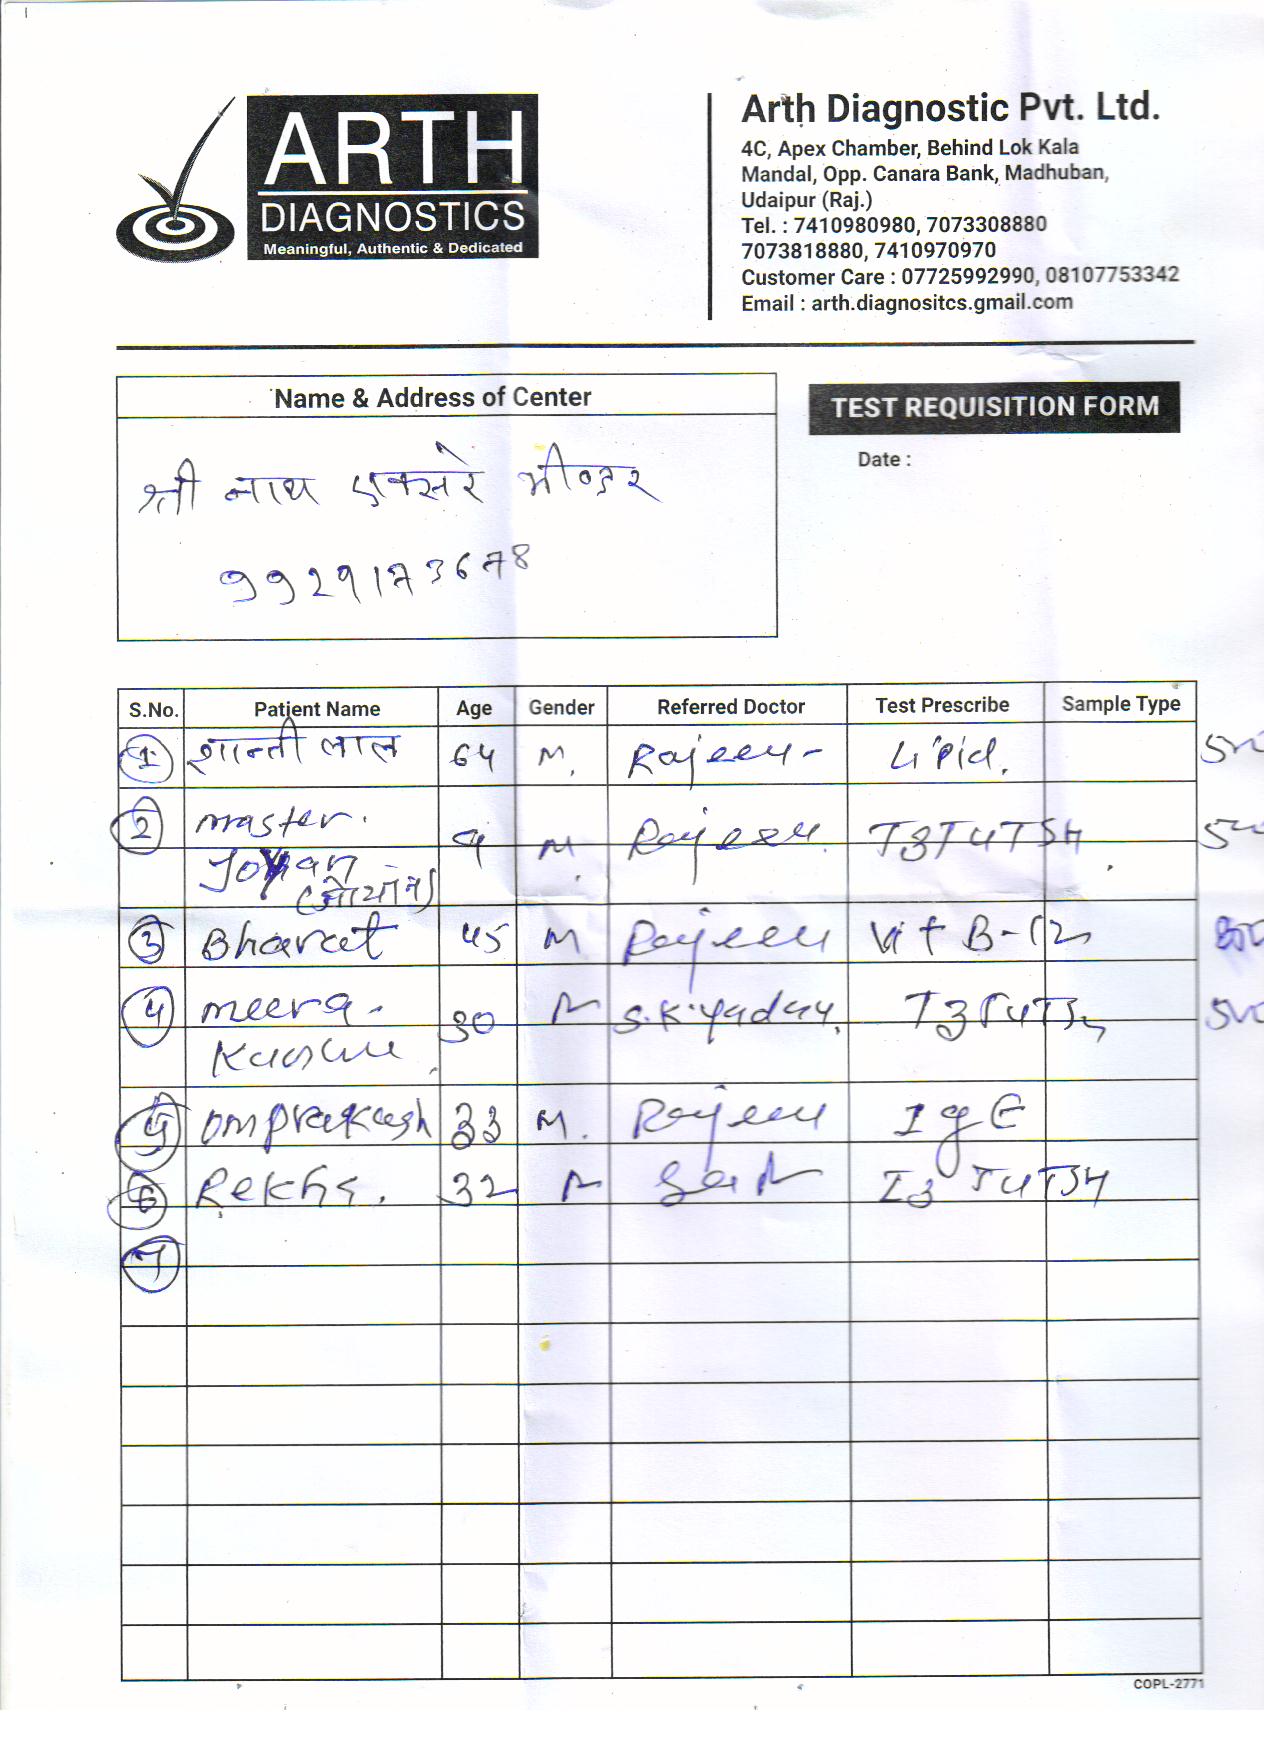 ARTH
DIAGNOSTICS
Meaningful, Authentic & Dedicated
Arth Diagnostic Pvt. Ltd.
4C, Apex Chamber, Behind Lok Kala
Mandal, Opp. Canara Bank, Madhuban,
Udaipur (Raj.)
Tel. : 7410980980, 7073308880
7073818880, 7410970970
Customer Care : 07725992990, 08107753342
Email : arth.diagnositcs.gmail.com
Name & Address of Center
TEST REQUISITION FORM
Date :
श्री नाथ एक्सरे भीण्डर
9929173678
S.No. Patient Name Age Gender Referred Doctor Test Prescribe Sample Type
1 शान्ती लाल 64 M. Rajeev- Lipid.
2 master. 9 M. Rajeev. T3T4TSH
3 Bharat 45 M Rajeev Vit B-12
4 meera- 30 S.K.Yadav. T3T4TSH
5 omprakash 33 M. Rajeev IgE
6 Rekha. 32 T3 T4TSH
7
COPL-2771